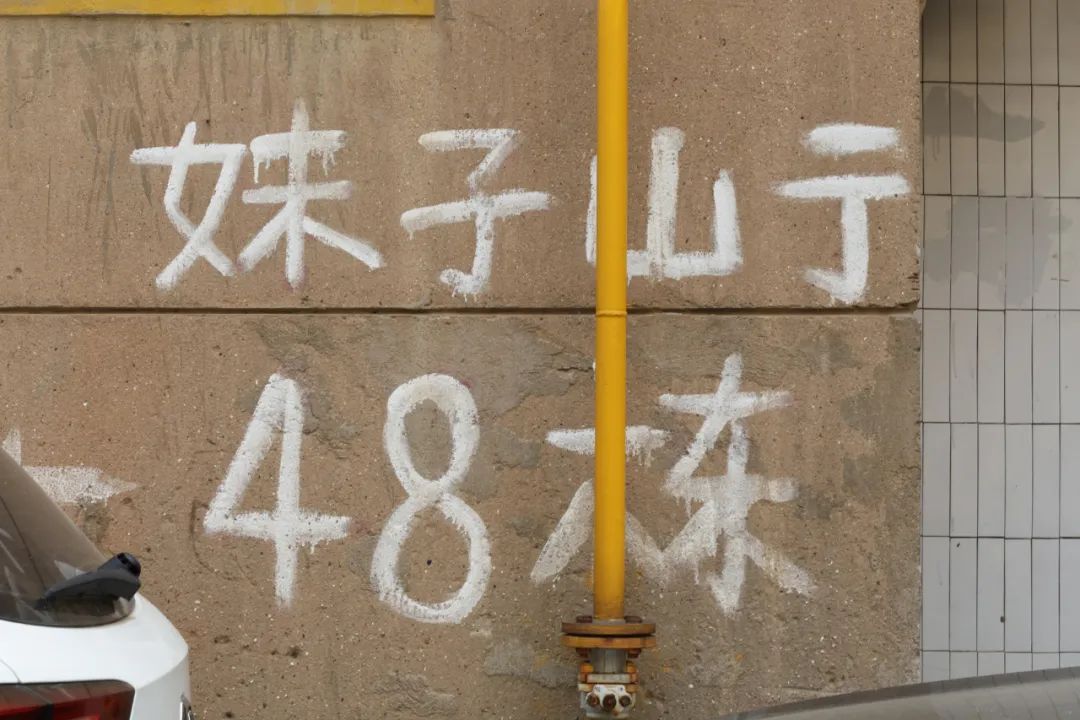 妹子山亍
48栋